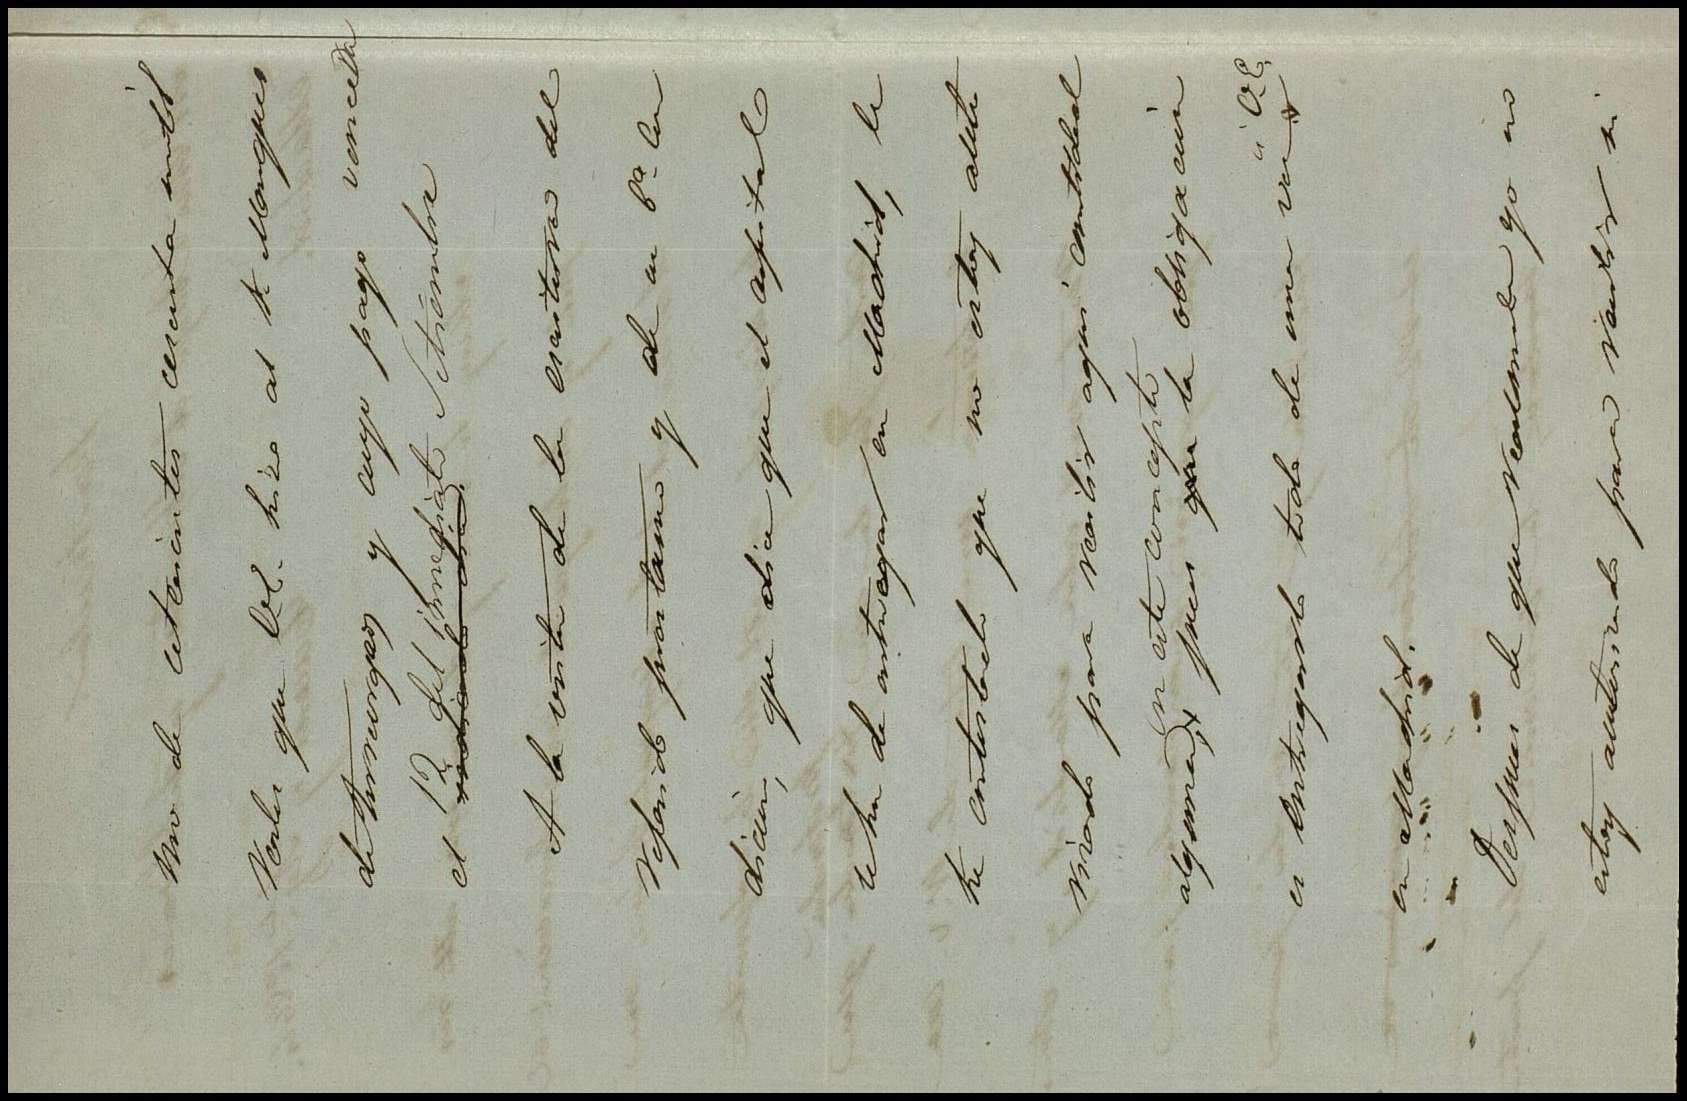 mo de setecientos cincuenta mil
reales que V.E. hizo al Sr Marques
de Torreorgaz y cuyo pago vencerá
el 12 del inmediato Setiembre
A la vista de la escritura del
referido prestamo y de su 6ª con
dicion, que dice que el capital
se ha de entregar en Madrid, le
he contestado que no estoy auto
rizado para recibir aquí cantidad
alguna, en este concepto pues que la obligacion
es entregarlo todo de una vez á V.E.
en Madrid.
Despues de que realmente yo no
estoy autorizado para recibir ni